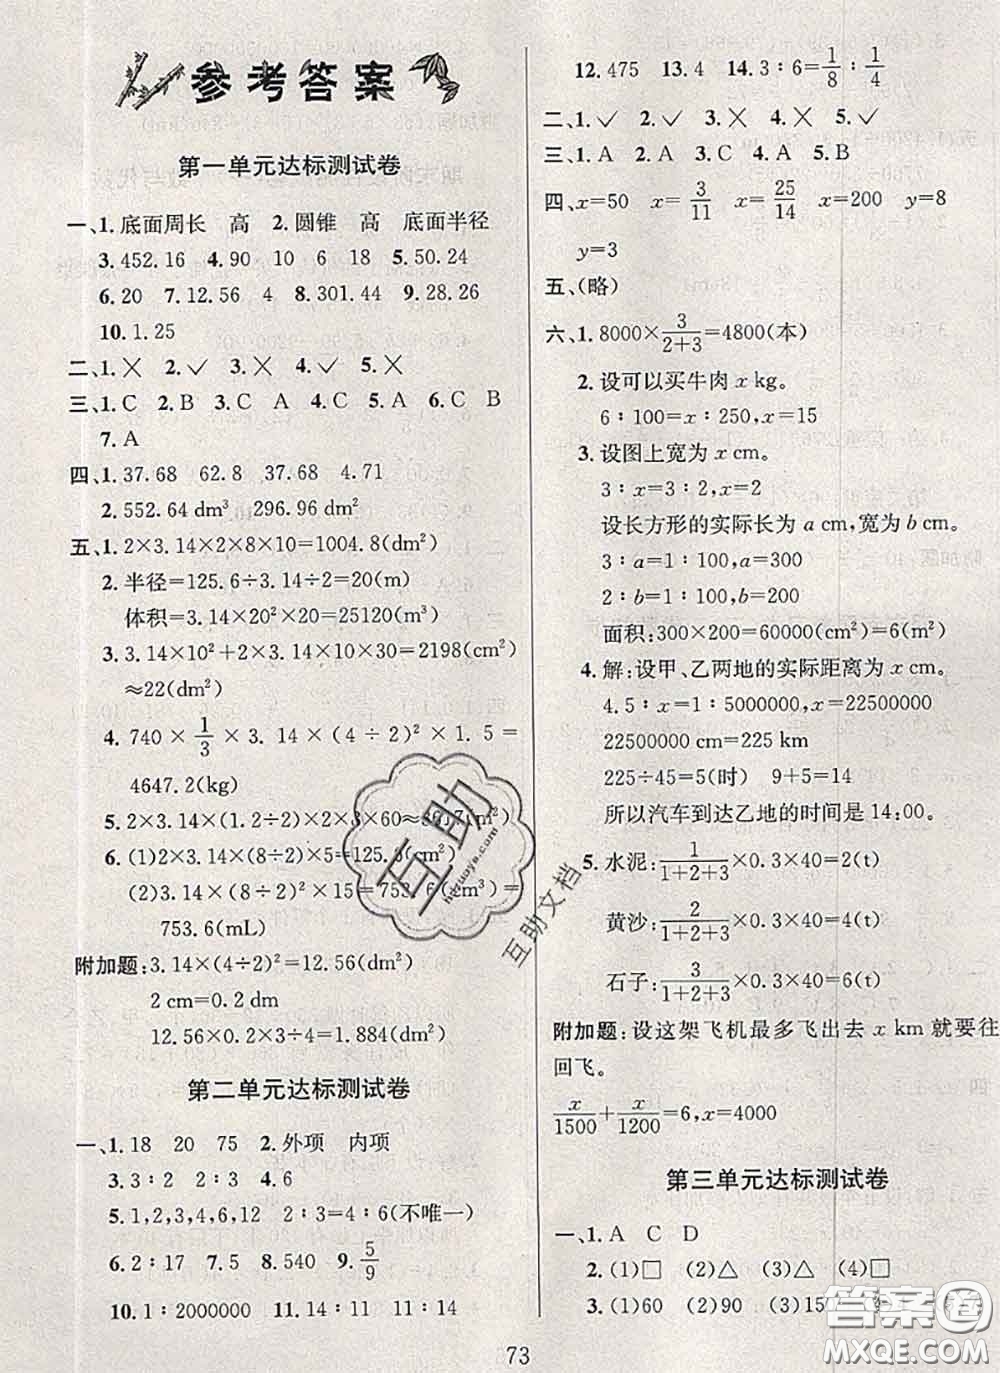 参考答案
第一单元达标测试卷
一、1.底面周长 高 2.圆锥 高 底面半径
3.452.16 4.90 10 6 18 5.50.24
6.20 7.12.56 4 8.301.44 9.28.26
10.1.25
二、1.╳ 2.✓ 3.╳ 4.✓ 5.╳
三、1.C 2.B 3.C A 4.C 5.A 6.C B
7.A
四、1.37.68 62.8 37.68 4.71
2.552.64 dm³ 296.96 dm²
五、1.2×3.14×2×8×10=1004.8(dm²)
2.半径=125.6÷3.14÷2=20(m)
体积=3.14×20²×20=25120(m³)
3.3.14×10²+2×3.14×10×30=2198(cm²)
≈22(dm²)
4.740×1/3×3.14×(4÷2)²×1.5=
4647.2(kg)
5.2×3.14×(1.2÷2)×2×3×60≈ (m²)
6.(1)2×3.14×(8÷2)×5=125.6(cm²)
(2)3.14×(8÷2)²×15=753.6(cm³)=
753.6(mL)
附加题:3.14×(4÷2)²=12.56(m²)
2 cm=0.2 dm
12.56×0.2×3÷4=1.884(dm²)
第二单元达标测试卷
一、1.18 20 75 2.外项 内项
3.3∶2 2∶3 4.6
5.1,2,3,4,6,12 2∶3=4∶6(不唯一)
6.2 7.5 8.540 9.5/9
10.1∶2000000 11.14∶11 11∶14
12.475 13.4 14.3∶6=1/8∶1/4
二、1.✓ 2.✓ 3.╳ 4.╳ 5.✓
三、1.A 2.A 3.C 4.A 5.B
四、x=50 x=3/11 x=25/14 x=200 y=8
y=3
五、(略)
六、1.8000×3/(2+3)=4800(本)
2.设可以买牛肉 x kg。
6∶100=x∶250,x=15
3.设图上宽为 x cm。
3∶x=3∶2,x=2
设长方形的实际长为 a cm,宽为 b cm。
3∶a=1∶100,a=300
2∶b=1∶100,b=200
面积:300×200=60000(cm²)=6(m²)
4.解:设甲、乙两地的实际距离为 x cm。
4.5∶x=1∶5000000,x=22500000
22500000 cm=225 km
225÷45=5(时) 9+5=14
所以汽车到达乙地的时间是 14:00。
5.水泥:1/(1+2+3)×0.3×40=2(t)
黄沙:2/(1+2+3)×0.3×40=4(t)
石子:3/(1+2+3)×0.3×40=6(t)
附加题:设这架飞机最多飞出去 x km 就要往
回飞。
x/1500+x/1200=6,x=4000
第三单元达标测试卷
一、1.A C D
2.(1)□ (2)△ (3)△ (4)□
3.(1)60 (2)90 (3)15
73
互助
互助文档
答案圈
MXQE.COM